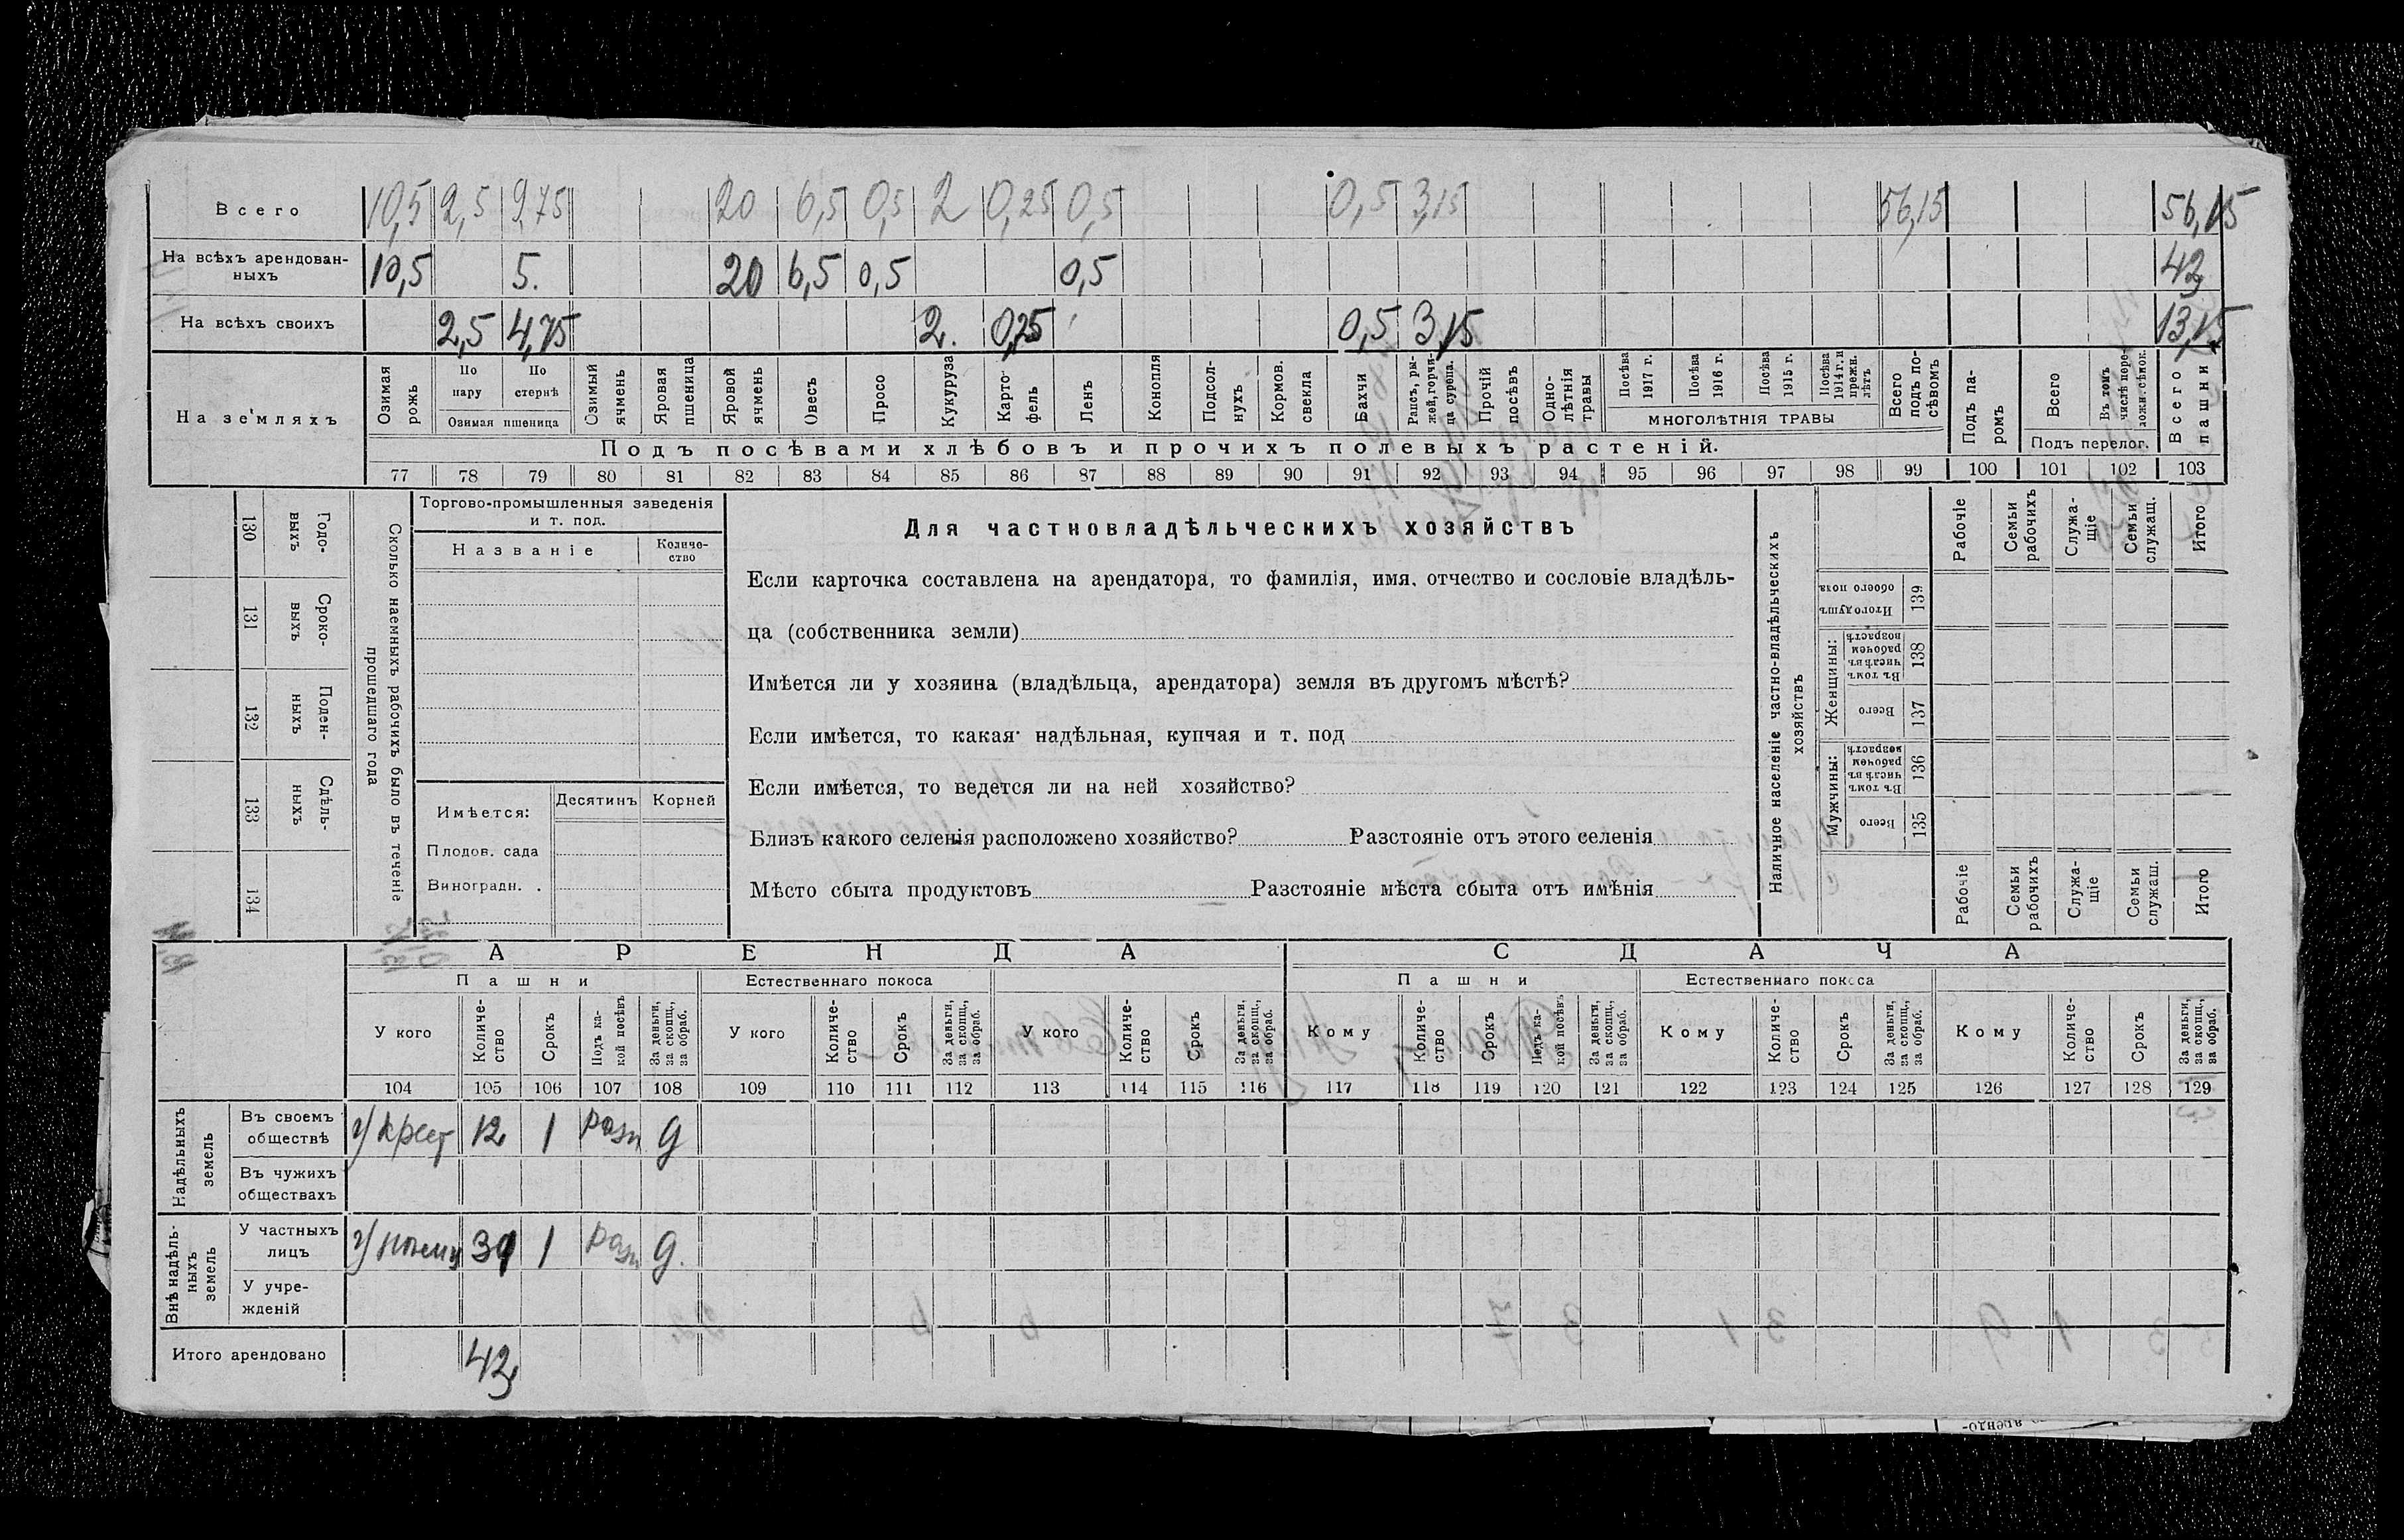 Всего 10,5 2,5 9,75 20 6,5 0,5 2 0,25 0,5 0,5 3,15 56,15 56,15
На всѣхъ арендован-
ныхъ 10,5 5. 20 6,5 0,5 0,5 42
На всѣхъ своихъ 2,5 4,75 2. 0,25 0,5 3,15 13,15
На земляхъ
Озимая рожь
По пару
По стернѣ
Озимая пшеница
Озимый ячмень
Яровая пшеница
Яровой ячмень
Овесъ
Просо
Кукуруза
Карто-
фель
Ленъ
Конопля
Подсол-
нухъ
Кормов. свекла
Бахчи
Рапсъ, ры-
жей, горчи-
ца сурепа.
Прочій посѣвъ
Одно-
лѣтнія травы
Посѣва 1917 г.
Посѣва 1916 г.
Посѣва 1915 г.
Посѣва 1914 г. и прежн. лѣтъ
МНОГОЛѢТНІЯ ТРАВЫ
Всего подъ по-
сѣвомъ
Подъ па-
ромъ
Всего
Въ томъ числѣ пере-
ложн. сѣнок.
Подъ перелог.
Всего пашни
Подъ посѣвами хлѣбовъ и прочихъ полевыхъ растеній.
77 78 79 80 81 82 83 84 85 86 87 88 89 90 91 92 93 94 95 96 97 98 99 100 101 102 103
130 Годо-
выхъ
131 Сроко-
выхъ
132 Поден-
ныхъ
133 Сдѣль-
ныхъ
134
Сколько наемныхъ рабочихъ было въ теченіе
прошедшаго года
Торгово-промышленныя заведенія
и т. под.
Названіе
Количе-
ство
Имѣется: Десятинъ Корней
Плодов. сада
Виноградн. .
Для частновладѣльческихъ хозяйствъ
Если карточка составлена на арендатора, то фамилія, имя, отчество и сословіе владѣль-
ца (собственника земли)
Имѣется ли у хозяина (владѣльца, арендатора) земля въ другомъ мѣстѣ?
Если имѣется, то какая: надѣльная, купчая и т. под
Если имѣется, то ведется ли на ней хозяйство?
Близъ какого селенія расположено хозяйство? Разстояніе отъ этого селенія
Мѣсто сбыта продуктовъ Разстояніе мѣста сбыта отъ имѣнія
Наличное населеніе частно-владѣльческихъ
хозяйствъ
Рабочіе
Семьи рабочихъ
Служа-
щіе
Семьи служащ.
Итого
Итого душъ обоего пола 139
Женщины:
Въ томъ числѣ въ рабочем возрастѣ 138
Всего 137
Мужчины:
Въ томъ числѣ въ рабочем возрастѣ 136
Всего 135
Рабочіе
Семьи рабочихъ
Служа-
щіе
Семьи служащ.
Итого
АРЕНДА СДАЧА
Пашни Естественнаго покоса Пашни Естественнаго покоса
У кого
Количе-
ство
Срокъ
Подъ ка-
кой посѣвъ
За деньги, за скопщ., за обраб.
У кого
Количе-
ство
Срокъ
За деньги, за скопщ., за обраб.
У кого
Количе-
ство
Срокъ
За деньги, за скопщ., за обраб.
Кому
Количе-
ство
Срокъ
Подъ ка-
кой посѣвъ
За деньги, за скопщ., за обраб.
Кому
Количе-
ство
Срокъ
За деньги, за скопщ., за обраб.
Кому
Количе-
ство
Срокъ
За деньги, за скопщ., за обраб.
104 105 106 107 108 109 110 111 112 113 114 115 116 117 118 119 120 121 122 123 124 125 126 127 128 129
Надѣльныхъ земель
Въ своемъ
обществѣ У крест 12 1 разн д
Въ чужихъ
обществахъ
Внѣ надѣль-
ныхъ земель
У частныхъ
лицъ 1 разн д.
У учре-
жденій
Итого арендовано 42